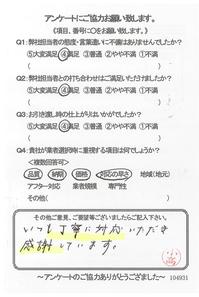 アンケートにご協力お願い致します。
(項目、番号に○をお願い致します)
Q1:弊社担当者の態度・言葉遣いに不備はありませんでしたか?
⑤大変満足 ④満足 ③普通 ②やや不満 ①不満
Q2:弊社担当者との打ち合わせはご満足いただけましたか?
⑤大変満足 ④満足 ③普通 ②やや不満 ①不満
Q3:お引き渡し時の仕上がりはいかがでしたか?
⑤大変満足 ④満足 ③普通 ②やや不満 ①不満
Q4:貴社が業者選択時に重視する項目は何でしょうか?
<複数回答可>
品質 納期 価格 対応の早さ 地域(地元)
アフター対応 業者規模 専門性
その他( )
その他ご意見、ご要望等ございましたらご記入下さい。
いつも丁寧に対応いただき
感謝しています。
〜アンケートのご協力ありがとうございました〜 104931